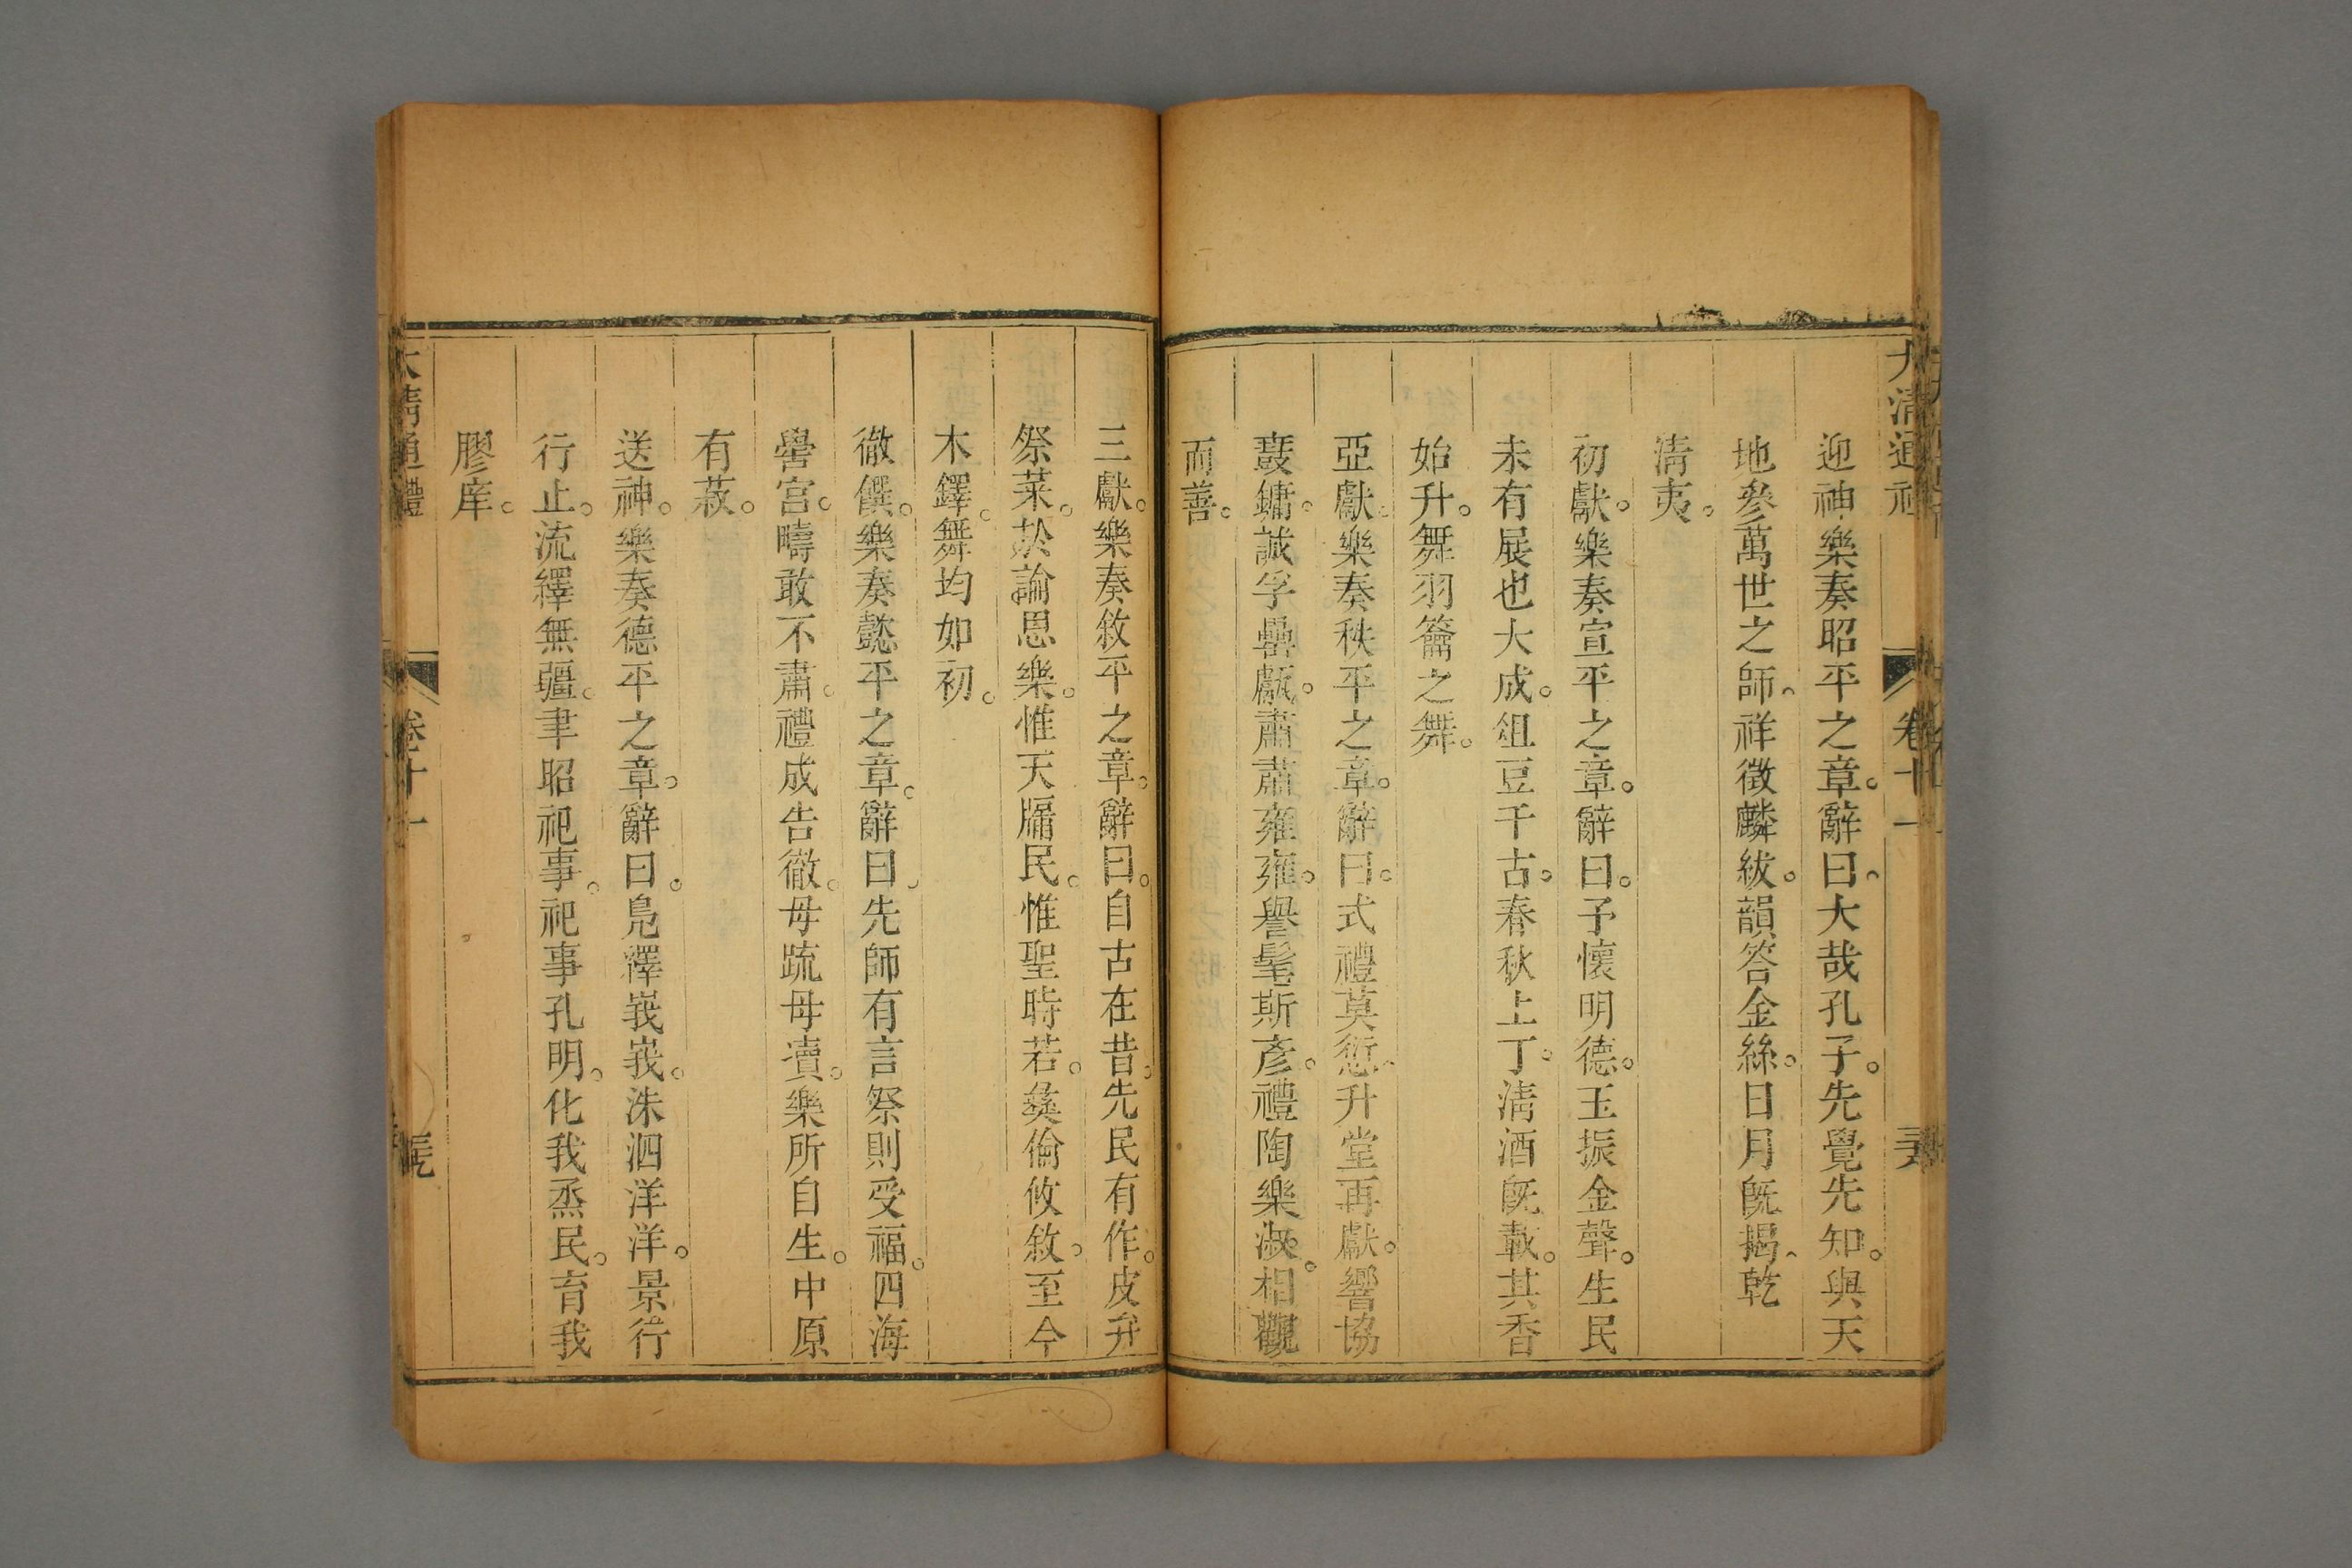 大清通禮
卷十一
迎神樂奏昭平之章。辭曰。大哉孔子。先覺先知。與天
地參萬世之師。祥徵麟紱。韻答金絲。日月既揭。乾
清夷。
初獻。樂奏宣平之章。辭曰。予懷明德。玉振金聲。生民
未有展也大成。俎豆千古。春秋上丁。清酒既載。其香
始升。舞羽籥之舞。
亞獻。樂奏秩平之章。辭曰。式禮莫愆。升堂再獻。響協
鼖鏞。誠孚罍甗。肅肅雍雍。譽髦斯彥。禮陶樂淑。相觀
而善。
三獻。樂奏敘平之章。辭曰。自古在昔。先民有作。皮弁
祭菜。於論思樂。惟天牖民。惟聖時若。彝倫攸敘。至今
木鐸。舞均如初。
徹饌。樂奏懿平之章。辭曰。先師有言祭則受福。四海
黌宮。疇敢不肅。禮成告徹。毋疏毋瀆。樂所自生。中原
有菽。
送神。樂奏德平之章。辭曰。鳧繹峩峩。洙泗洋洋。景行
行止。流繹無疆。聿昭祀事。祀事孔明。化我烝民。育我
膠庠。
大清通禮
卷十一